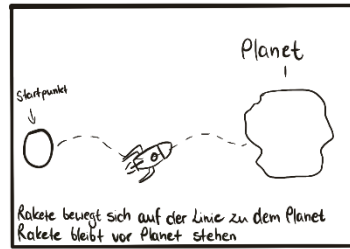 Planet
Startpunkt
Rakete bewegt sich auf der Linie zu dem Planet
Rakete bleibt vor Planet stehen